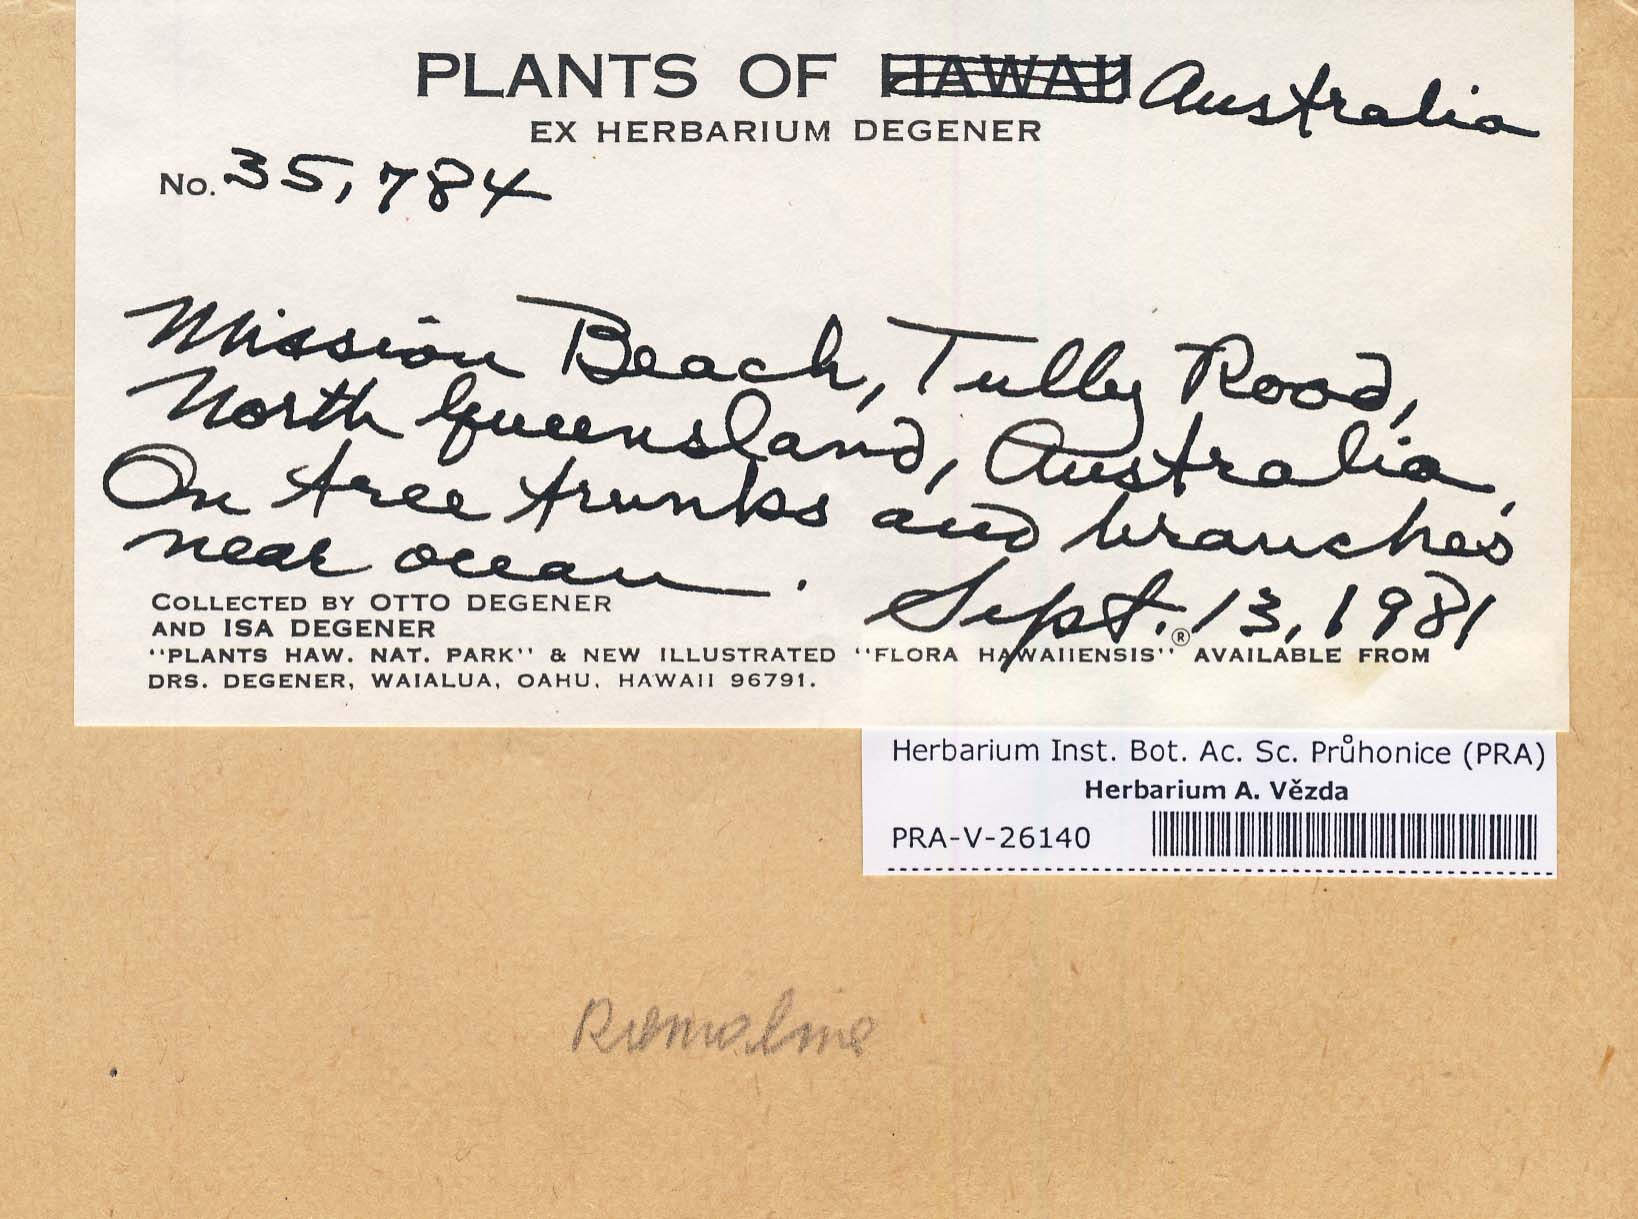 PLANTS OF HAWAII Australia
EX HERBARIUM DEGENER
No. 35,784
Mission Beach, Tully Road,
North Queensland, Australia,
On tree trunks and branches
near ocean. Sept. 13, 1981
COLLECTED BY OTTO DEGENER
AND ISA DEGENER
"PLANTS HAW. NAT. PARK" & NEW ILLUSTRATED "FLORA HAWAIIENSIS"® AVAILABLE FROM
DRS. DEGENER, WAIALUA, OAHU, HAWAII 96791.
Herbarium Inst. Bot. Ac. Sc. Průhonice (PRA)
Herbarium A. Vězda
PRA-V-26140